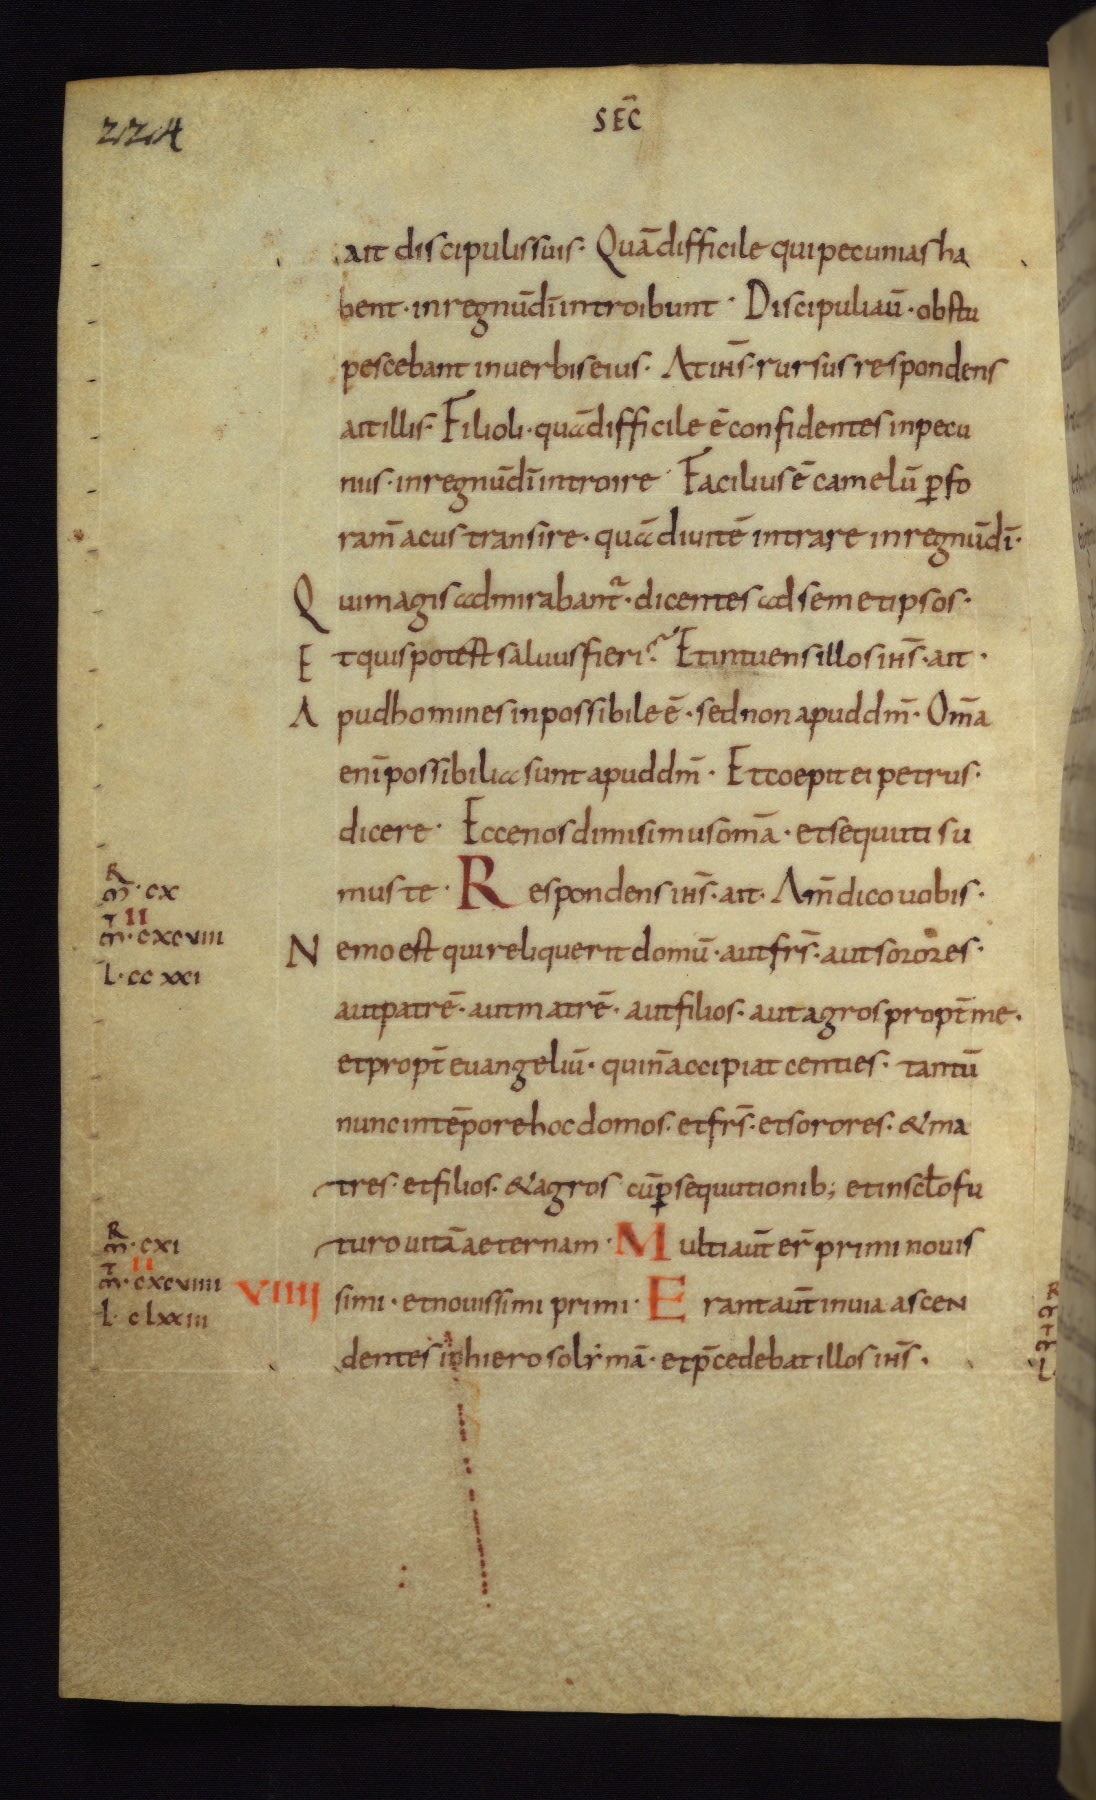 224
SEC̄
ait discipulis suis· Quā difficile qui pecunias ha
bent· in regnū dī introibunt· Discipuli aū· obstu
pescebant in verbis eius· At ih̄s· rursus respondens
ait illis· Filioli· quā difficile ē confidentes in pecu
niis· in regnū dī introire· Facilius ē camelū ꝑ fo
ram̄ acus transire· quā divitē intrare in regnū dī·
Qui magis admirabant᷑· dicentes ad semetipsos·
Et quis potest salvus fieri? Et intuens illos ih̄s· ait·
Apud homines inpossibile ē· sed non apud dm̄· Om̄a
enī possibilia sunt apud dm̄· Et coepit ei petrus·
dicere· Ecce nos dimisimus om̄a· et sequuti su
mus te· Respondens ih̄s· ait· Am̄ dico vobis·
R
m̄· cx
T II
m̄· cxcviii
L· ccxxi
Nemo est qui reliquerit domū· aut frs̄· aut sorores·
aut patrē· aut matrē· aut filios· aut agros propt̄ me·
et propt̄ evangeliū· qui n̄ accipiat centies· tantū
nunc in tēpore hoc domos· et frs̄· et sorores· & ma
tres· et filios· & agros cū ꝑsequutionib; et in sc̄lo fu
turo vitā aeternam· Multi aūt er̄ primi novis
R
m̄· cxi
T II
m̄· cxcviiii
L· clxxiii
VIIII
simi· et novissimi primi· Erant aūt in via ascen
dentes in hierosolymā· et p̄cedebat illos ih̄s·
R
m̄
T
m̄
L·